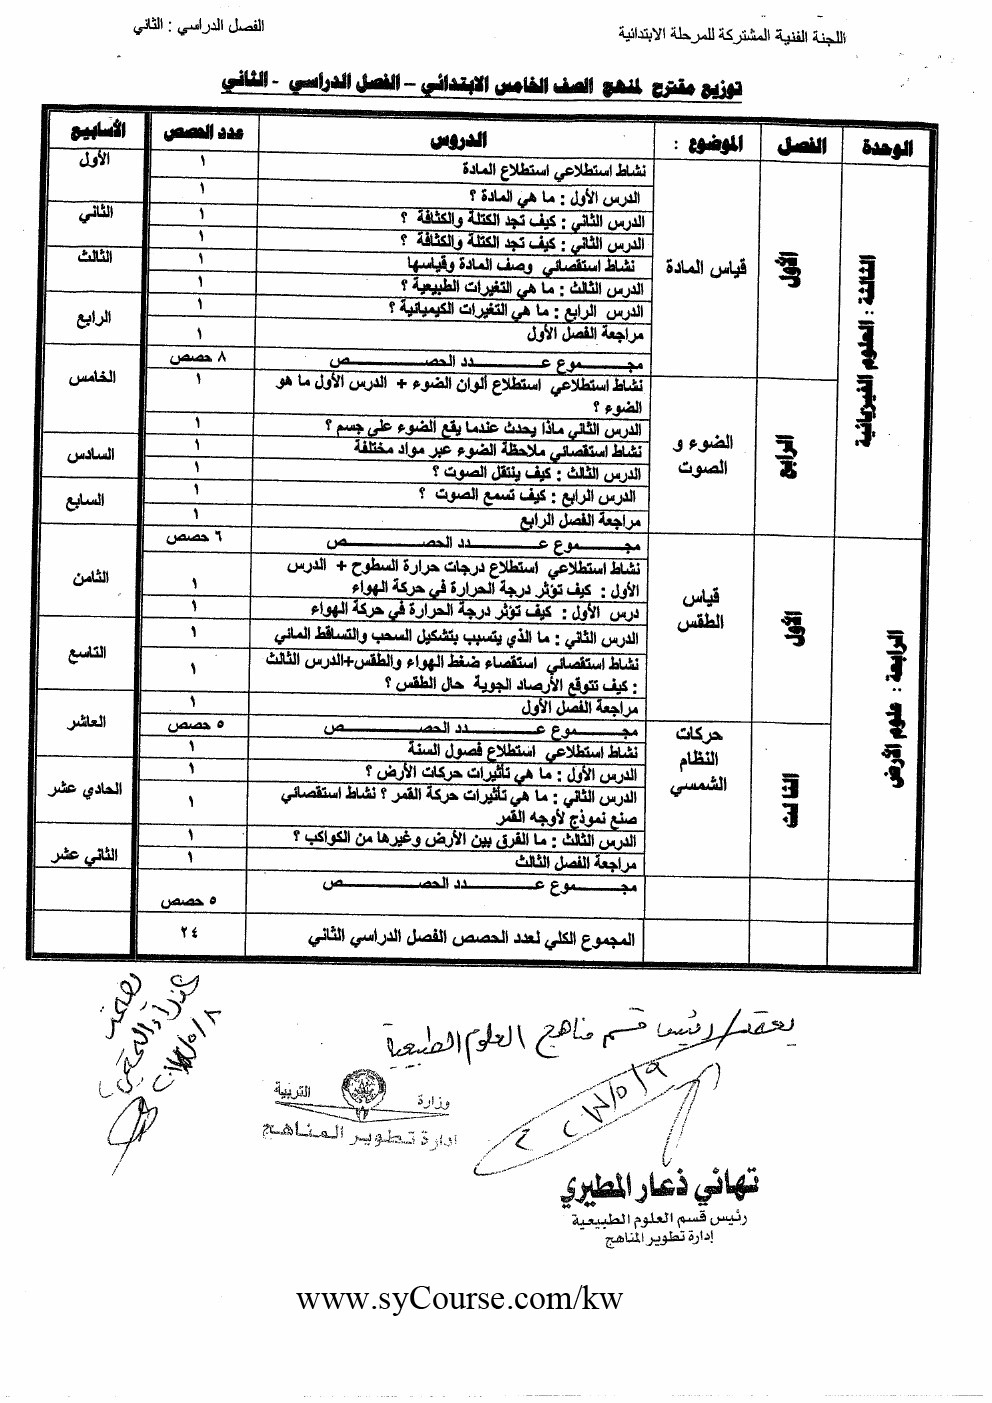 اللجنة الفنية المشتركة للمرحلة الابتدائية
الفصل الدراسي : الثاني
توزيع مقترح لمنهج الصف الخامس الابتدائي – الفصل الدراسي - الثاني
الوحدة الفصل الموضوع : الدروس عدد الحصص الأسابيع
الثالثة : العلوم الفيزيائية
الأول
قياس المادة
نشاط استطلاعي استطلاع المادة ١ الأول
الدرس الأول : ما هي المادة ؟ ١
الدرس الثاني : كيف تجد الكتلة والكثافة ؟ ١ الثاني
الدرس الثاني : كيف تجد الكتلة والكثافة ؟ ١
نشاط استقصائي وصف المادة وقياسها ١ الثالث
الدرس الثالث : ما هي التغيرات الطبيعية ؟ ١
الدرس الرابع : ما هي التغيرات الكيميائية ؟ ١ الرابع
مراجعة الفصل الأول ١
مجـــموع عـــدد الحصـــص ٨ حصص
الرابع
الضوء و
الصوت
نشاط استطلاعي استطلاع ألوان الضوء + الدرس الأول ما هو ١ الخامس
الضوء ؟
الدرس الثاني ماذا يحدث عندما يقع الضوء على جسم ؟ ١
نشاط استقصائي ملاحظة الضوء عبر مواد مختلفة ١ السادس
الدرس الثالث : كيف ينتقل الصوت ؟ ١
الدرس الرابع : كيف تسمع الصوت ؟ ١ السابع
مراجعة الفصل الرابع ١
مجـــموع عـــدد الحصـــص ٦ حصص
الرابعة : علوم الأرض
الأول
قياس
الطقس
نشاط استطلاعي استطلاع درجات حرارة السطوح + الدرس
الأول : كيف تؤثر درجة الحرارة في حركة الهواء ١ الثامن
درس الأول : كيف تؤثر درجة الحرارة في حركة الهواء ١
الدرس الثاني : ما الذي يتسبب بتشكيل السحب والتساقط المائي ١ التاسع
نشاط استقصائي استقصاء ضغط الهواء والطقس+الدرس الثالث ١
: كيف تتوقع الأرصاد الجوية حال الطقس ؟
مراجعة الفصل الأول ١ العاشر
مجـــموع عـــدد الحصـــص ٥ حصص
الثالث
حركات
النظام
الشمسي
نشاط استطلاعي استطلاع فصول السنة ١
الدرس الأول : ما هي تأثيرات حركات الأرض ؟ ١ الحادي عشر
الدرس الثاني : ما هي تأثيرات حركة القمر ؟ نشاط استقصائي ١
صنع نموذج لأوجه القمر
الدرس الثالث : ما الفرق بين الأرض وغيرها من الكواكب ؟ ١
مراجعة الفصل الثالث ١ الثاني عشر
مجـــموع عـــدد الحصـــص ٥ حصص
المجموع الكلي لعدد الحصص الفصل الدراسي الثاني ٢٤
يعتمد / رئيس قسم مناهج العلوم الطبيعية
وزارة التربية
إدارة تطوير المناهج
تهاني ذعار المطيري
رئيس قسم العلوم الطبيعية
إدارة تطوير المناهج
www.syCourse.com/kw